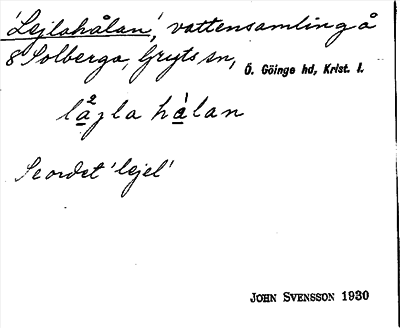 'Lejlahålan', vattensamling å
8 Solberga, Gryts sn, Ö. Göinge hd, Krist. l.
hålan
Se ordet 'lejel'
JOHN SVENSSON 1930